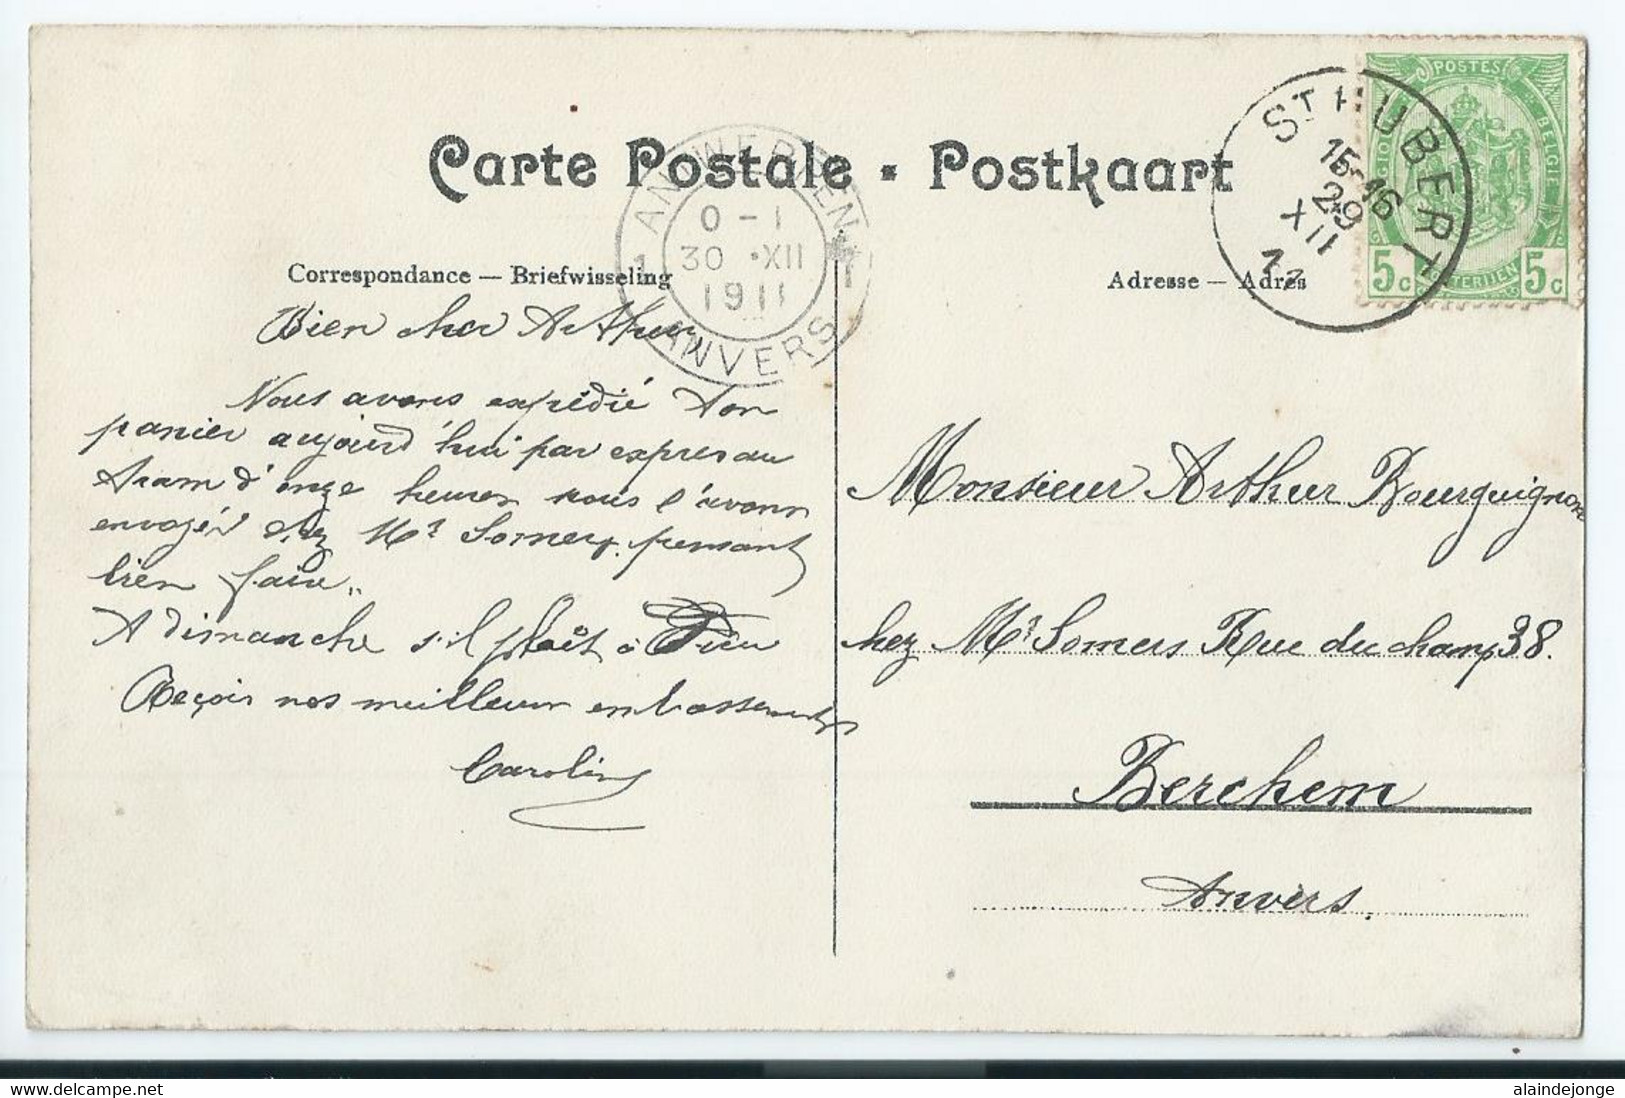 Carte Postale - Postkaart
Correspondance — Briefwisseling
Adresse — Adres
ANTWERPEN
0 - 1
30 XII
1911
ANVERS
1 1
ST HUBERT
15-16
29
XII
11
POSTES
BELGIE
5c
5c
Bien cher Arthur,
Nous avons expédié ton
panier aujourd'hui par expres au
tram d'onze heures nous l'avons
envoyé chez Mr Somers pensant
bien faire.
A dimanche s'il plaît à Dieu
Reçois nos meilleurs embrassements
Caroline
Monsieur Arthur Bourguignon
chez Mr Somers Rue du champ 38.
Berchem
Anvers.
www.delcampe.net
alaindejonge